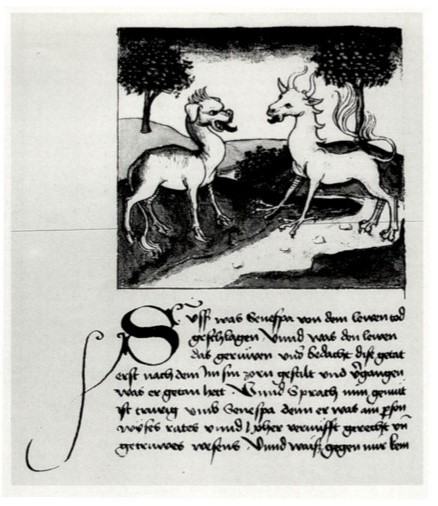 Suss was Senespa von dem lewen tod
geschlagen Vnnd was den lewen
das geruwen vnd bedacht dise getat
erst nach dem Im sin zorn gestilt vnd v̄gangen
was er getan hett Vnnd Sprach min gemüt
ist trurig vmb Senespa denn er was ain
wyses rates vnnd hoher vernufft gerecht vn̄
getruwes wesens Vnnd waiß gegen mir kein